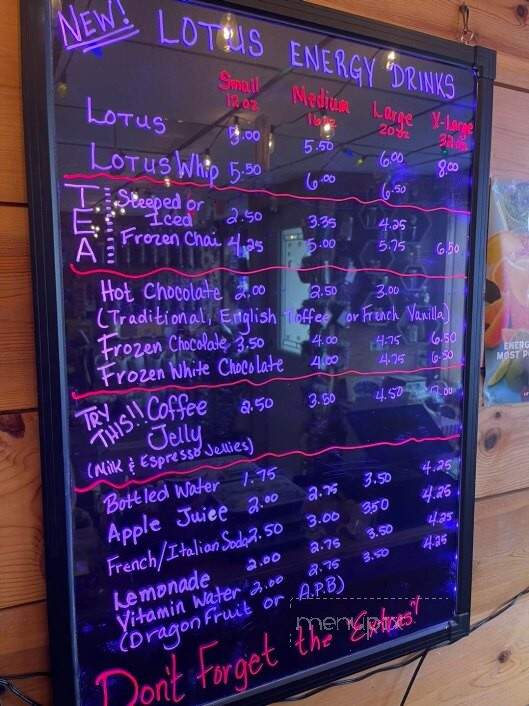 NEW! LOTUS ENERGY DRINKS
Small Medium Large X-Large
12 oz 16 oz 20 oz 32 oz
LOTUS 5.00 5.50 6.00 8.00
LOTUS Whip 5.50 6.00 6.50
TEA
Steeped or
Iced 2.50 3.35 4.25
Frozen Chai 4.25 5.00 5.75 6.50
Hot Chocolate 2.00 2.50 3.00
(Traditional, English Toffee or French Vanilla)
Frozen Chocolate 3.50 4.00 4.75 6.50
Frozen White Chocolate 4.00 4.75 6.50
TRY THIS!! Coffee 2.50 3.50 4.50 7.00
Jelly
(Milk & Espresso Jellies)
Bottled Water 1.75
Apple Juice 2.00 2.75 3.50 4.25
French/Italian Sodas 2.50 3.00 3.50 4.25
Lemonade 2.00 2.75 3.50 4.25
Vitamin Water 2.00 2.75 3.50 4.25
(Dragon Fruit or A.P.B)
Don't Forget the Extras!
menupix
ENERG
MOST P